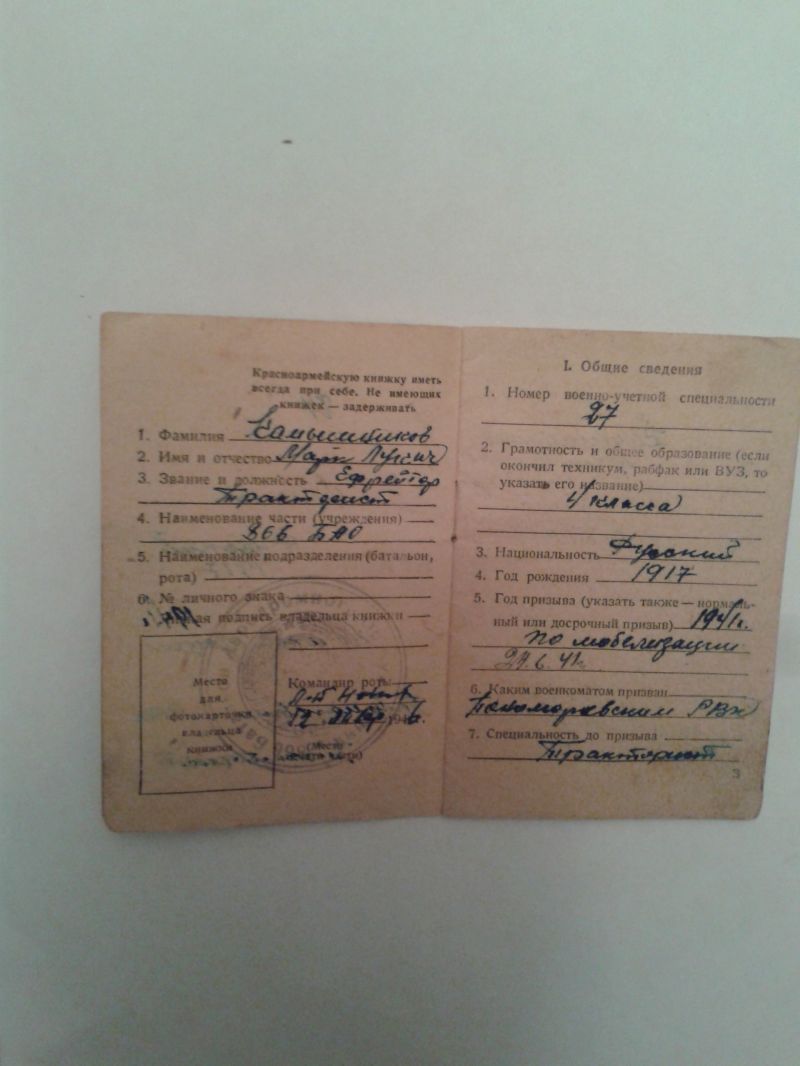 Красноармейскую книжку иметь
всегда при себе. Не имеющих
книжек — задерживать
1. Фамилия Камышников
2. Имя и отчество Марк Лукич
3. Звание и должность Ефрейтор
Тракторист
4. Наименование части (учреждения)
866 БАО
5. Наименование подразделения (батальон,
рота)
6. № личного знака
подпись владельца книжки
Место
для
фотокарточки
владельца
книжки
Командир роты
(Место
печати части)
I. Общие сведения
1. Номер военно-учетной специальности
27
2. Грамотность и общее образование (если
окончил техникум, рабфак или ВУЗ, то
указать его название)
4 класса
3. Национальность Русский
4. Год рождения 1917
5. Год призыва (указать также — нормаль-
ный или досрочный призыв) 1941г.
по мобелизации
24.6.41
6. Каким военкоматом призван
Пономаревским РВК
7. Специальность до призыва
Тракторист
3